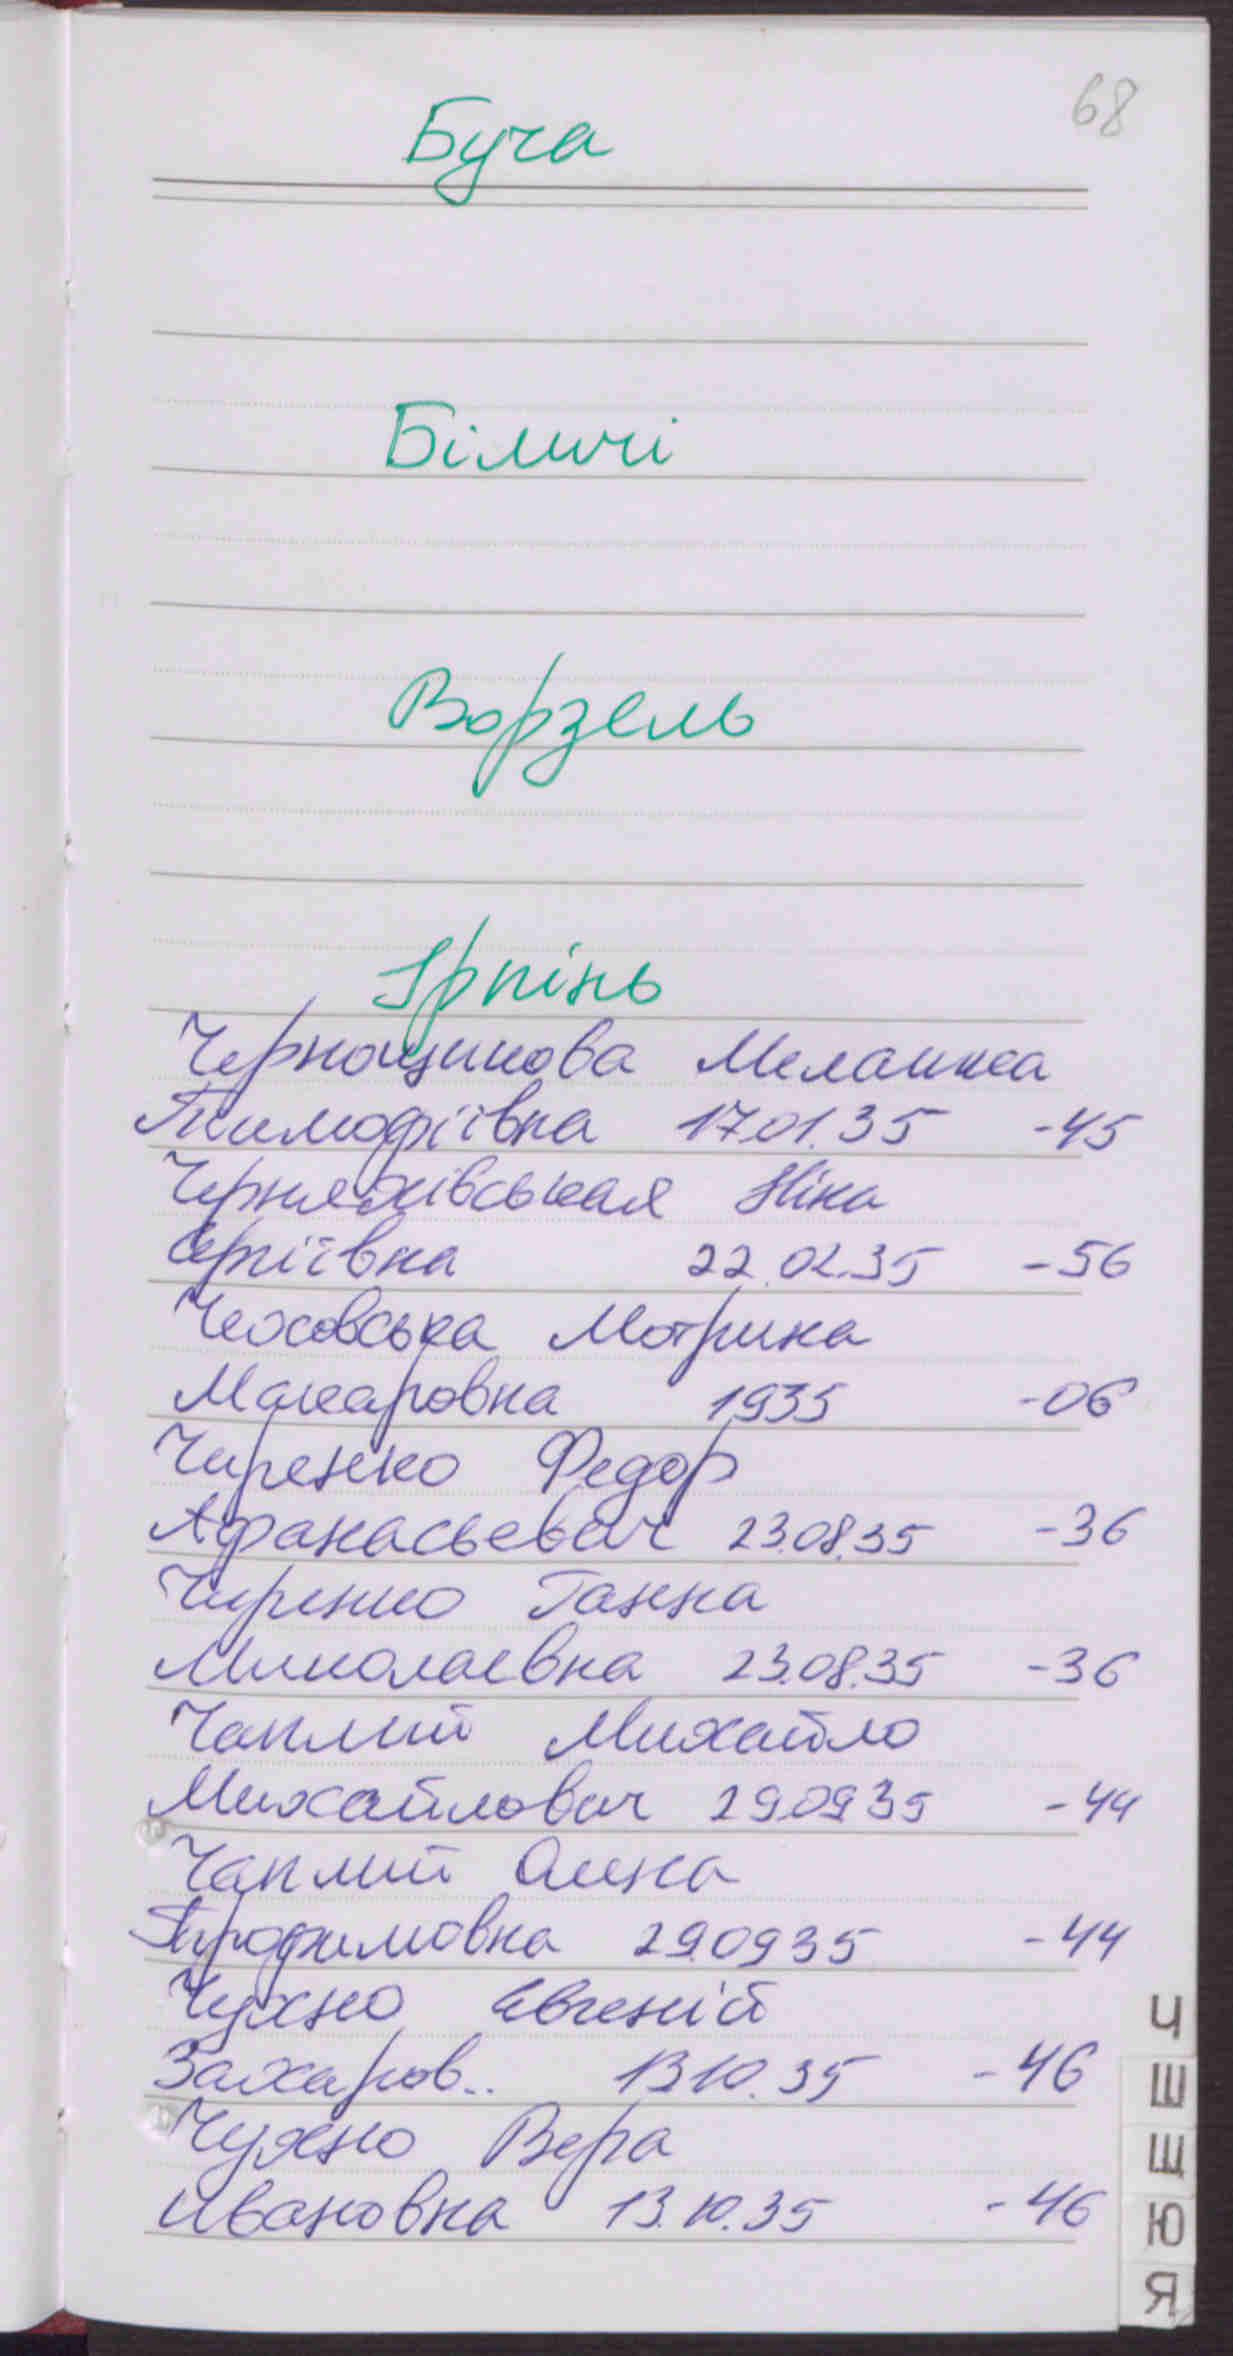 68
Буча
Біличі
Ворзель
Ірпінь
Чернощикова Меланка
Тимофіївна 17.01.35 -45
Черняхівськая Ніна
Сергіївна 22.02.35 -56
Чеховська Мотрина
Макаровна 1935 -06
Чиренко Федор
Афанасьевич 23.08.35 -36
Чиренко Ганна
Миколаевна 23.08.35 -36
Чаплий Михайло
Михайлович 29.09.35 -44
Чаплий Олена
Трофимовна 29.09.35 -44
Чухно Євгеній
Захаров.. 13.10.35 -46
Чухно Вера
Ивановна 13.10.35 -46
Ч
Ш
Щ
Ю
Я